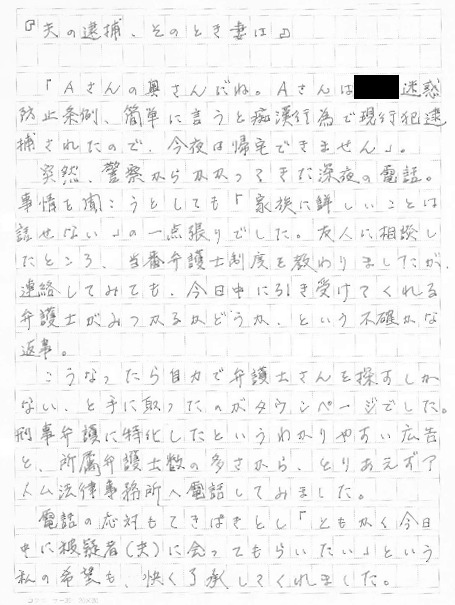 『夫の逮捕、そのとき妻は』
「Aさんの奥さんだね。Aさんは 迷惑
防止条例、簡単に言うと痴漢行為で現行犯逮
捕されたので、今夜は帰宅できません」。
突然、警察からかかってきた深夜の電話。
事情を聞こうとしても「家族に詳しいことは
話せない」の一点張りでした。友人に相談し
たところ、当番弁護士制度を教わりましたが、
連絡してみても、今日中に引き受けてくれる
弁護士がみつかるかどうか、という不確かな
返事。
こうなったら自力で弁護士さんを探すしか
ない、と手に取ったのがタウンページでした。
刑事弁護に特化したというわかりやすい広告
と、所属弁護士数の多さから、とりあえずア
トム法律事務所へ電話してみました。
電話の応対もてきぱきとし「ともかく今日
中に被疑者(夫)に会ってもらいたい」という
私の希望も、快く了承してくれました。